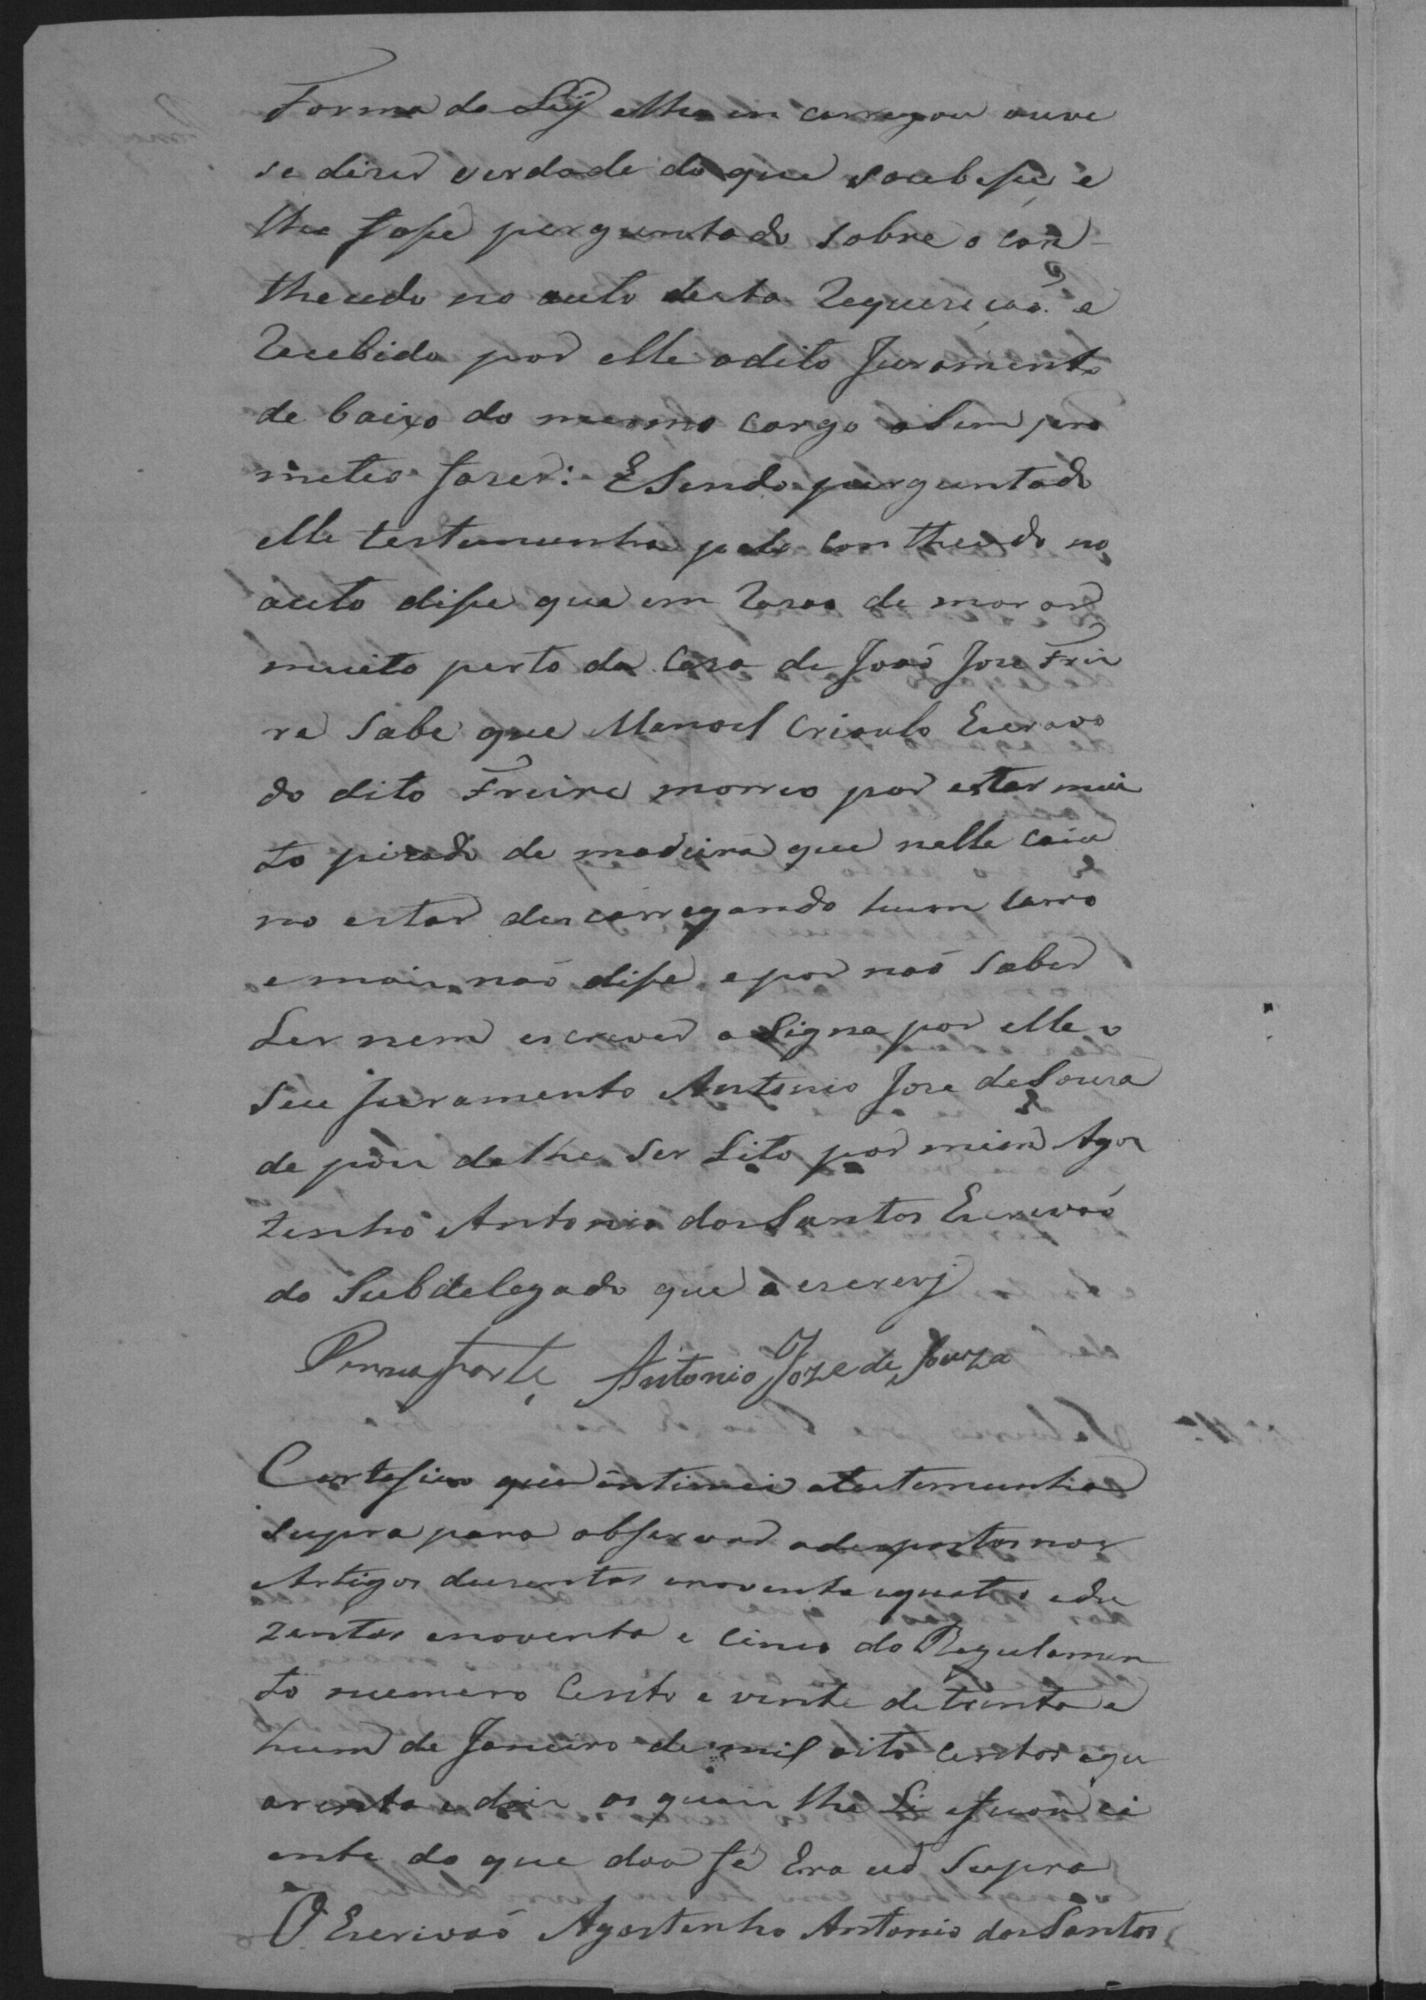 Forma da Leÿ elhe in carregou ouve
se diser verdade do que soubese e
lhe fose perguntado sobre o con-
theudo no auto desta Requeriçaõ e
Recebido por elle odito Juramento
de baixo do mesmo cargo asim pro
meteo faser: E Sendo perguntado
elle testemunha pelo contheudo no
auto dise que em Rasaõ de morar
muito perto da Casa de Joaõ Jose Frei
re Sabe que Manoel Crioulo Escravo
do dito Freire morreo por estar mui
to pisado de madeira que nelle caio
no estar descarregando hum carro
emais naõ dise e por naõ Saber
Ler nem escrever a Signa por elle o
Seu Juramento Antonio Jose deSousa
de pois de lhe Ser Lito por mim Agos
tenho Antonio dosSantos Escrivaõ
do Subdelegado que o escrevj
Pennaforte Antonio Joze de Souza
Certefico que intimei atestemunha
Supra para observar odespostos nos
Artigos dusentos enoventa equatro edu
zentos enoventa e Cinco do Regulamen
to numero Cento e vinte detrinta e
hum de Janeiro de mil oito centos equ
arenta edois os quais lhe Li eficou ci
ente do que dou fé Era ud Supra
O Escrivaõ Agostenho Antonio dosSantos